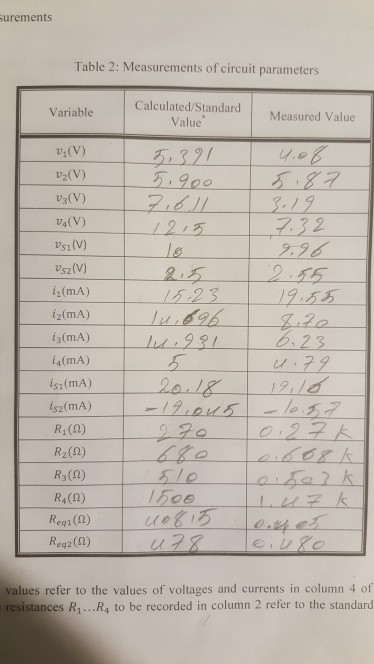 surements
Table 2: Measurements of circuit parameters
Variable Calculated/Standard Value* Measured Value
v₁(V) 5,391 4.08
v₂(V) 5.900 5.87
v₃(V) 7,611 3.19
v₄(V) 12,5 7.32
vS1(V) 10 9.96
vS2(V) 2.5 2.55
i₁(mA) 15.23 19.55
i₂(mA) 14.696 8.70
i₃(mA) 14.931 6.23
i₄(mA) 5 4.79
iS1(mA) 20.18 19.16
iS2(mA) -19.045 -10.57
R₁(Ω) 270 0.27 k
R₂(Ω) 680 0.668 k
R₃(Ω) 510 0.503 k
R₄(Ω) 1500 1.47 k
Req1(Ω) 408.15
Req2(Ω) 478 0.480
values refer to the values of voltages and currents in column 4 of
resistances R₁...R₄ to be recorded in column 2 refer to the standard